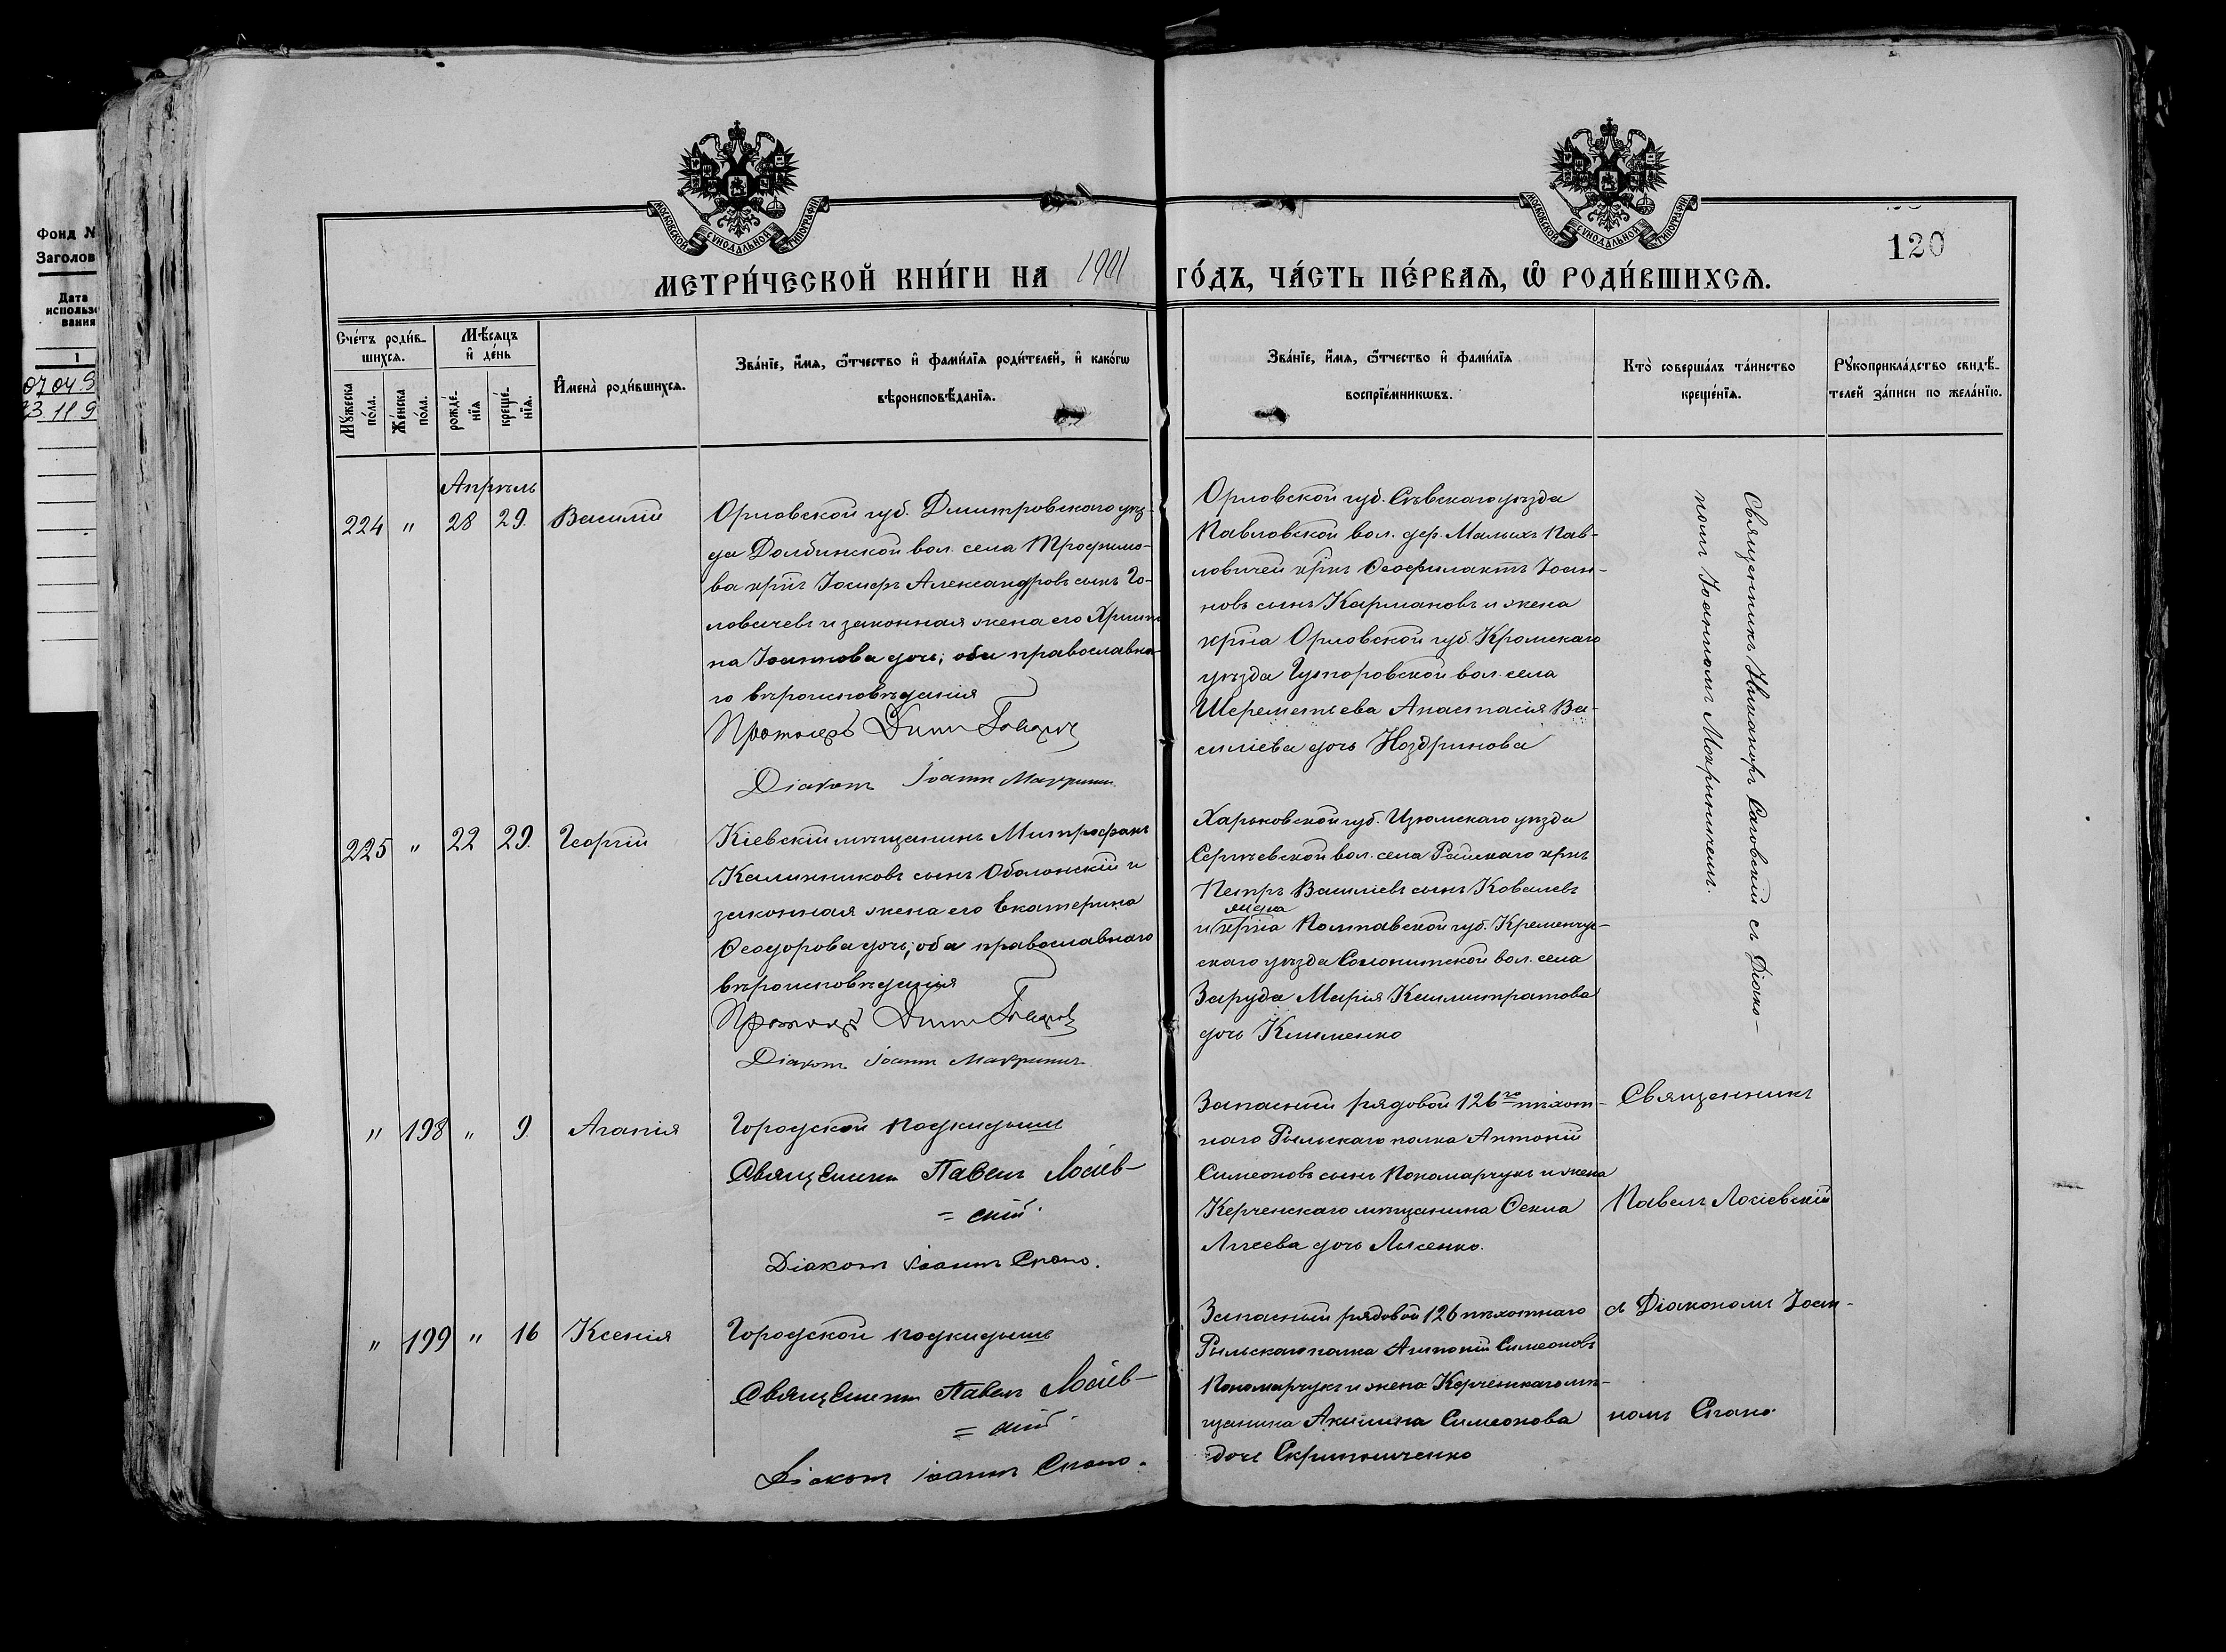 Фонд №
Заголов
Дата
использо
вания
1
07 04 9
23 11 9
МОСКОВСКОЙ СУНОДАЛЬНОЙ ТИПОГРАФИИ
МОСКОВСКОЙ СУНОДАЛЬНОЙ ТИПОГРАФИИ
120
МЕТРИ́ЧЕСКОЙ КНИ́ГИ НА 1901 ГО́ДЪ, ЧА́СТЬ ПЕ́РВАѦ, Ѡ҆ РОДИ́ВШИХСѦ.
Сче́тъ роди́в-
шихсѧ.
Мѹ́жеска
по́ла.
Же́нска
по́ла.
Мѣ́сѧцъ
и҆ де́нь
рожде́-
нїѧ
креще́-
нїѧ.
И҆мена̀ роди́вшихсѧ.
Зва́нїе, и҆́мѧ, ѻ҆́тчество и҆ фами́лїѧ роди́телей, и҆ како́гѡ
вѣроисповѣ́данїѧ.
Зва́нїе, и҆́мѧ, ѻ҆́тчество и҆ фами́лїѧ
воспрїе́мникѡвъ.
Кто̀ соверша́лъ та́инство
креще́нїѧ.
Рѹкоприкла́дство свидѣ́-
телей за́писи по жела́нїю.
Апрѣль
224 " 28 29. Василій
Орловской губ. Дмитровскаго уѣз-
да Долбинской вол. села Трофимо-
ва крнъ Іосифъ Александровъ сынъ Го-
ловачевъ и законная жена его Христи
на Іоаннова дочь; оба православна-
го вѣроисповѣданія
Протоіерей
Діаконъ Іоаннъ Макринич
Орловской губ. Сѣвскаго уѣзда
Павловской вол. дер. Малыхъ Пав-
ловичей крнъ Ѳеофилактъ Іоан-
новъ сынъ Кармановъ и жена
крна Орловской губ. Кромскаго
уѣзда Гуторовской вол. села
Шереметьева Анастасія Ва-
силіева дочь Ноздринова
Священникъ Никаноръ Саговскій съ Діако-
номъ Іоанномъ Мокриничемъ.
225 " 22 29. Георгій
Кіевскій мѣщанинъ Митрофанъ
Калинниковъ сынъ Оболонскій и
законная жена его Екатерина
Ѳеодорова дочь; оба православнаго
вѣроисповѣданія
Протоіерей
Діаконъ Іоаннъ Макринич
Харьковской губ. Изюмскаго уѣзда
Сергѣевской вол. села Райскаго крнъ
Петръ Василіевъ сынъ Ковалевъ
жена
и крна Полтавской губ. Кременчуг-
скаго уѣзда Солоницкой вол. села
Заруда Марія Каллистратова
дочь Клименко
" 198 " 9. Агапія
Городской подкидышъ
Священникъ Павелъ Лосіев-
= скій.
Діаконъ Іоаннъ Спано.
Запасный рядовой 126го пѣхот-
наго Рыльскаго полка Антоній
Симеоновъ сынъ Пономарчукъ и жена
Керченскаго мѣщанина Ѳекла
Аггеева дочь Лысенко.
Священникъ
Павелъ Лосіевскій
" 199 " 16 Ксенія
Городской подкидышъ
Священникъ Павелъ Лосіев-
= скій.
Діаконъ Іоаннъ Спано.
Запасный рядовой 126 пѣхотнаго
Рыльскаго полка Антоній Симеоновъ
Пономарчукъ и жена Керченскаго мѣ-
щанина Акилина Симеонова
дочь Скрипниченко
съ Діакономъ Іоан-
номъ Спано.